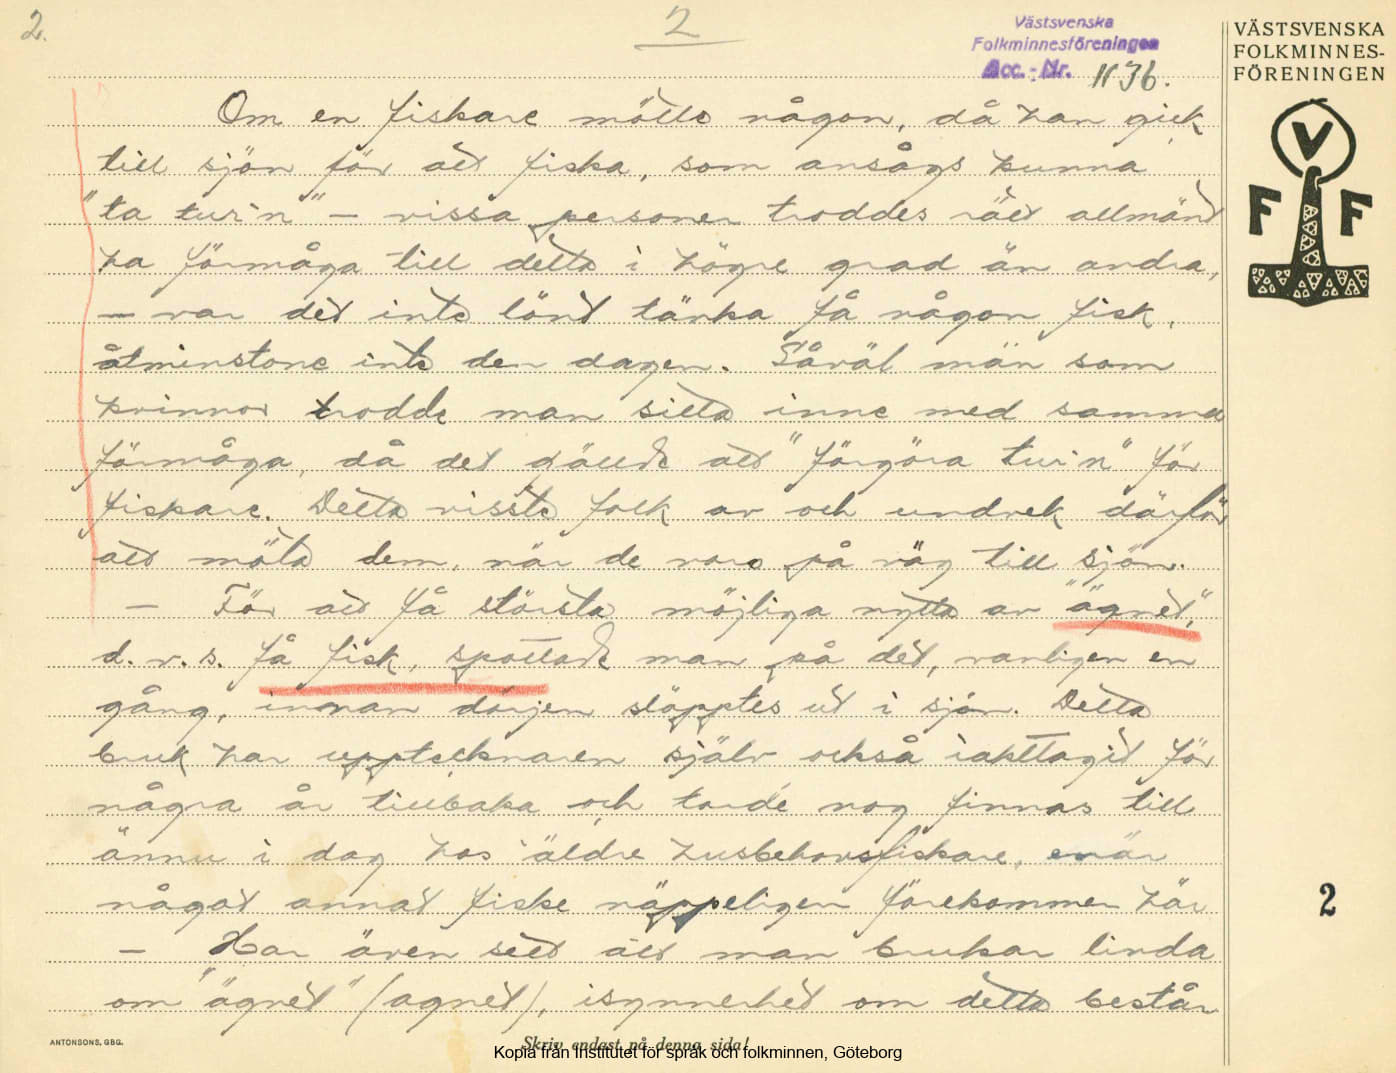 2.
2
Västsvenska
Folkminnesföreningen
Acc. - Nr. 1136.
VÄSTSVENSKA
FOLKMINNES-
FÖRENINGEN
V
F F
Om en fiskare mötte någon, då han gick
till sjön för att fiska, som ansågs kunna
"ta tur'n" – vissa personer troddes rätt allmänt
ha förmåga till detta i högre grad än andra,
– var det inte lönt tänka få någon fisk,
åtminstone inte den dagen. Såväl män som
kvinnor trodde man sitta inne med samma
förmåga, då det gällde att "förgöra tur'n" för
fiskare. Detta visste folk av och undvek därför
att möta dem, när de voro på väg till sjön.
– För att få största möjliga nytta av "ägnet",
d.v.s. få fisk, spottade man på det, vanligen en
gång, innan dörjen släpptes ut i sjön. Detta
bruk har upptecknaren själv också iakttagit för
några år tillbaka och torde nog finnas till
ännu i dag hos äldre husbehovsfiskare, enär
något annat fiske näppeligen förekommer här
– Har även sett att man brukar linda
om "ägnet" (agnet), isynnerhet om detta består
2
ANTONSONS, GBG.
Skriv endast på denna sida!
Kopia från Institutet för språk och folkminnen, Göteborg